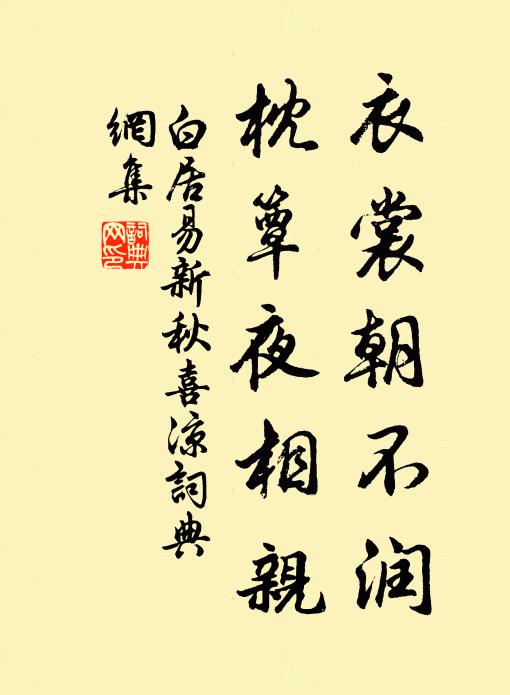 衣裳朝不润
枕簟夜相親
白居易新秋喜凉詞典
網集
詞典
网印